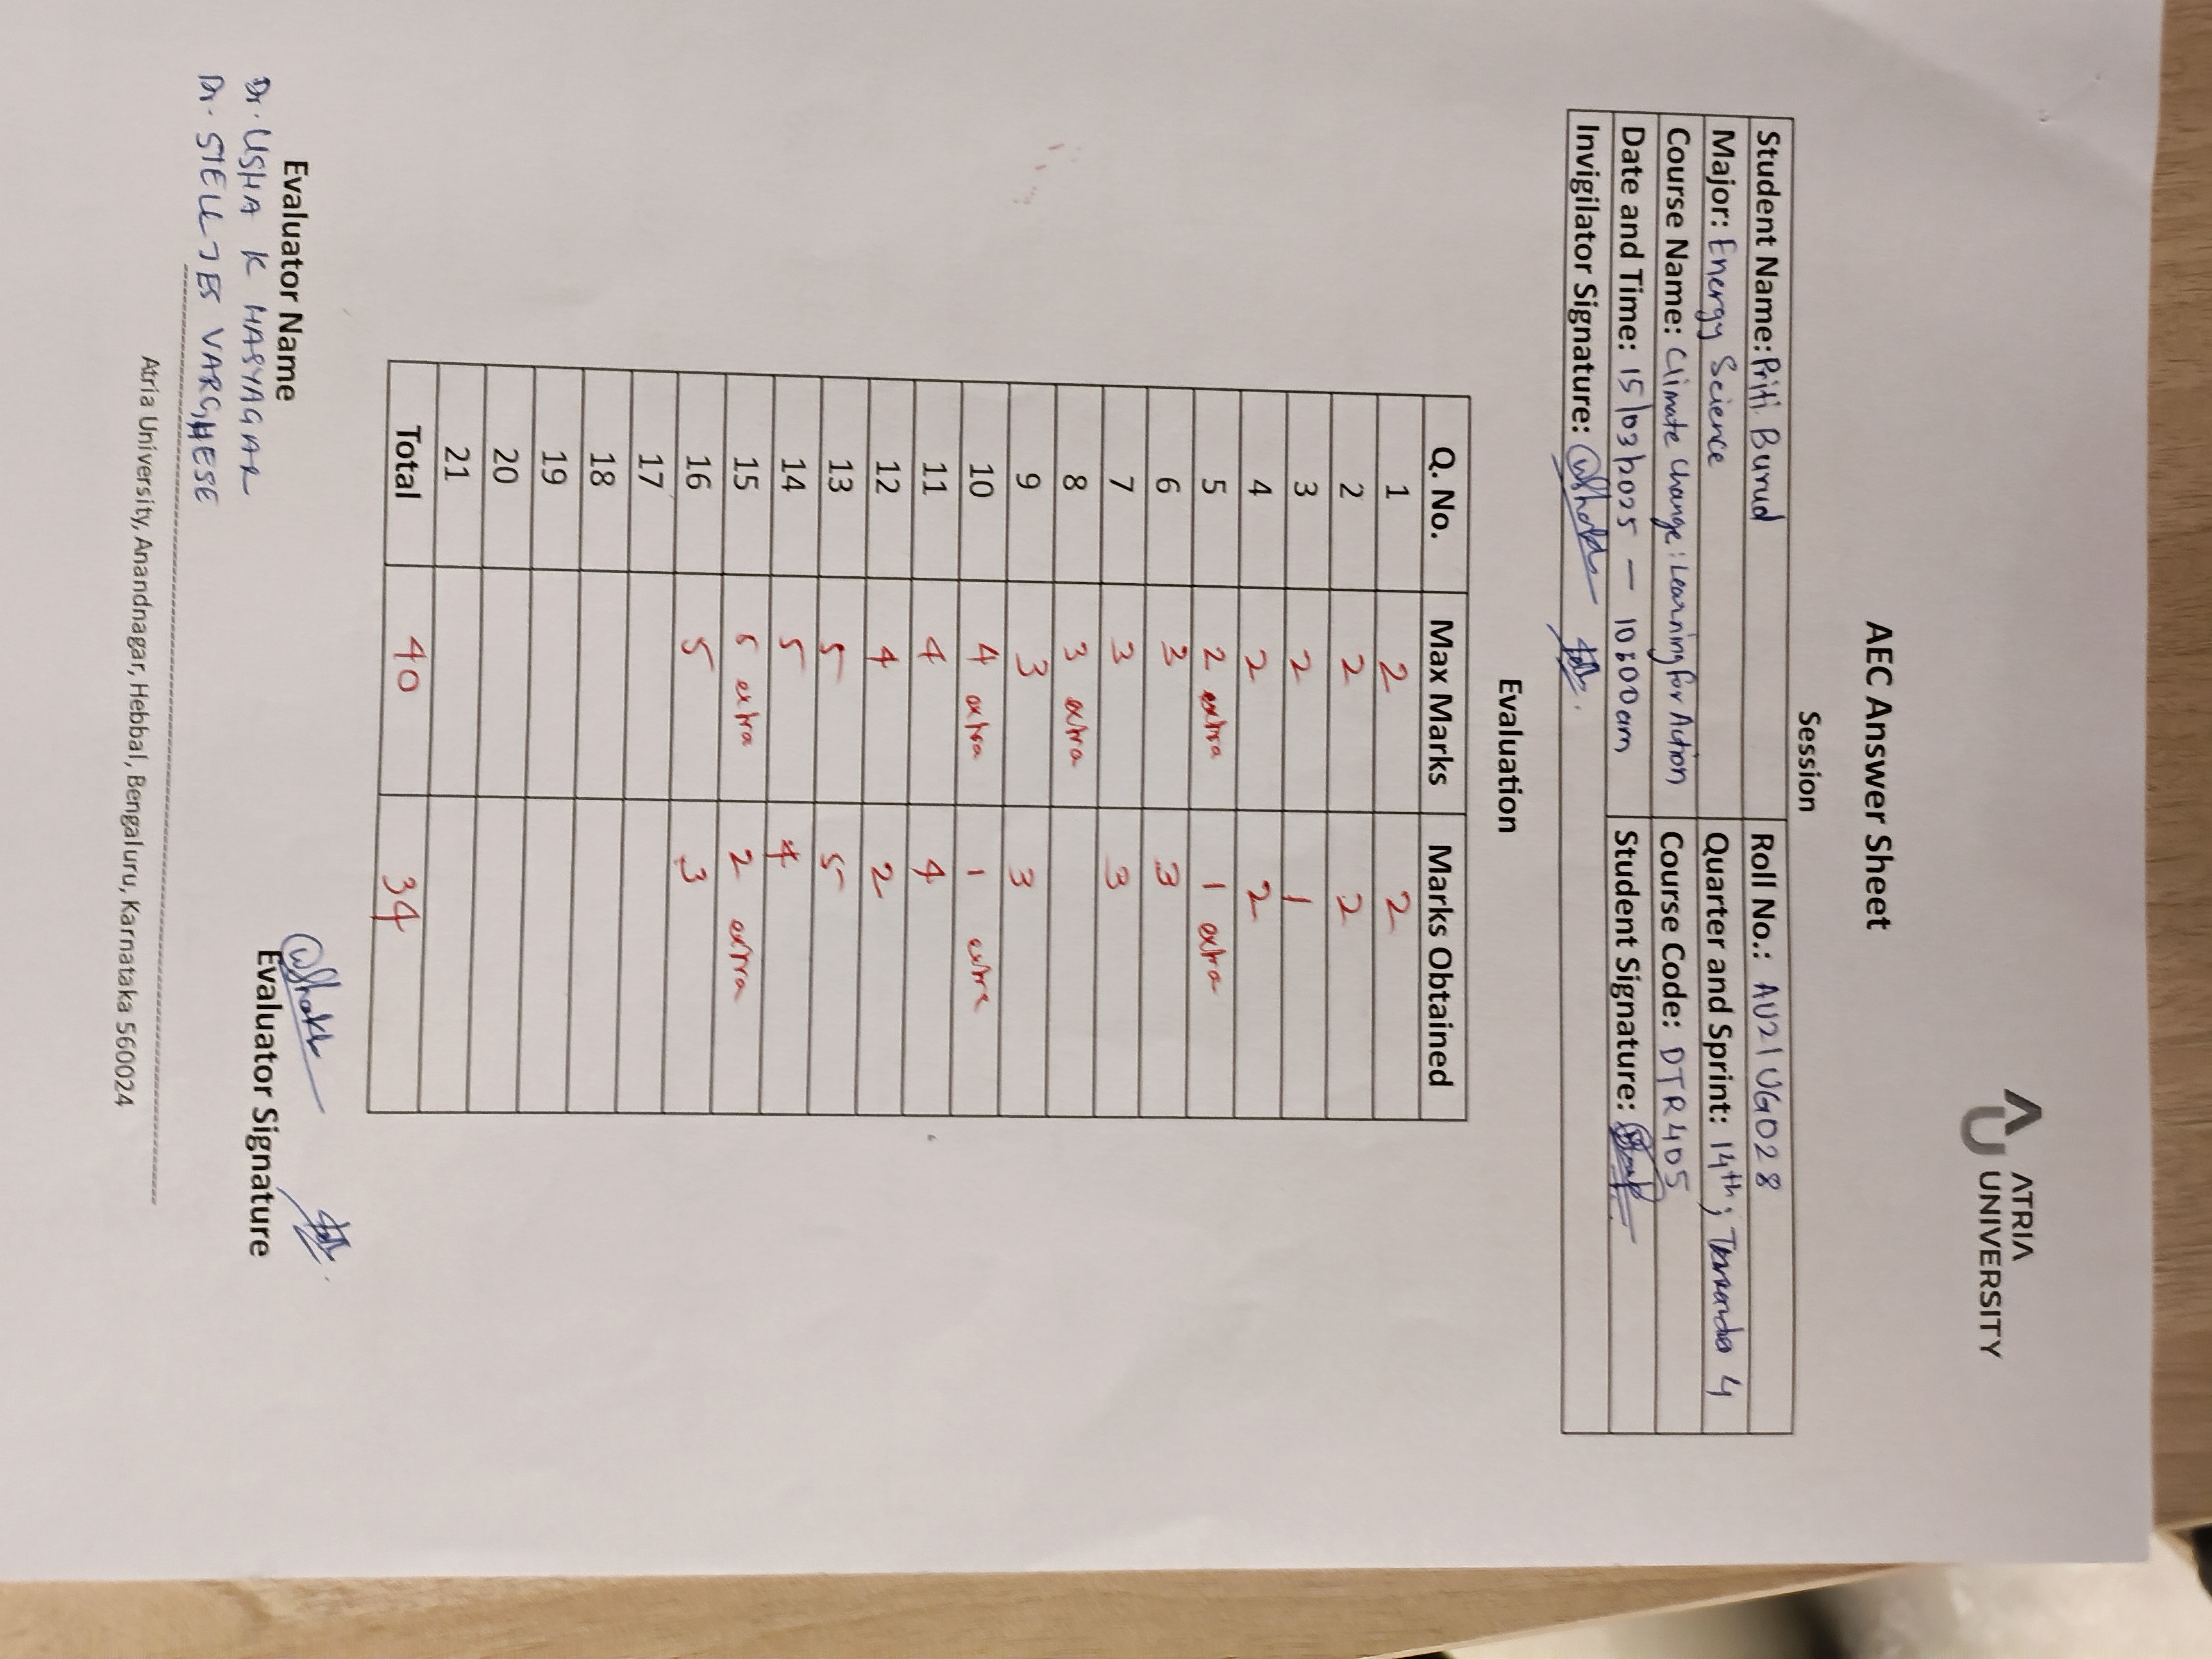 ATRIA
UNIVERSITY
AEC Answer Sheet
Session
Student Name: Priti Burud Roll No.: AU21UG028
Major: Energy Science Quarter and Sprint: 14th ; 4
Course Name: Climate Change: Learning for Action Course Code: DTR405
Date and Time: 15/03/2025 — 10:00 am Student Signature:
Invigilator Signature:
Evaluation
Q. No. Max Marks Marks Obtained
1 2 2
2 2 2
3 2 1
4 2 2
5 2 extra 1 extra
6 3 3
7 3 3
8 3 extra
9 3 3
10 4 extra 1 extra
11 4 4
12 4 2
13 5 5
14 5 4
15 5 extra 2 extra
16 5 3
17
18
19
20
21
Total 40 34
Evaluator Name Evaluator Signature
Dr. USHA K
Dr. STELLJES VARGHESE
Atria University, Anandnagar, Hebbal, Bengaluru, Karnataka 560024